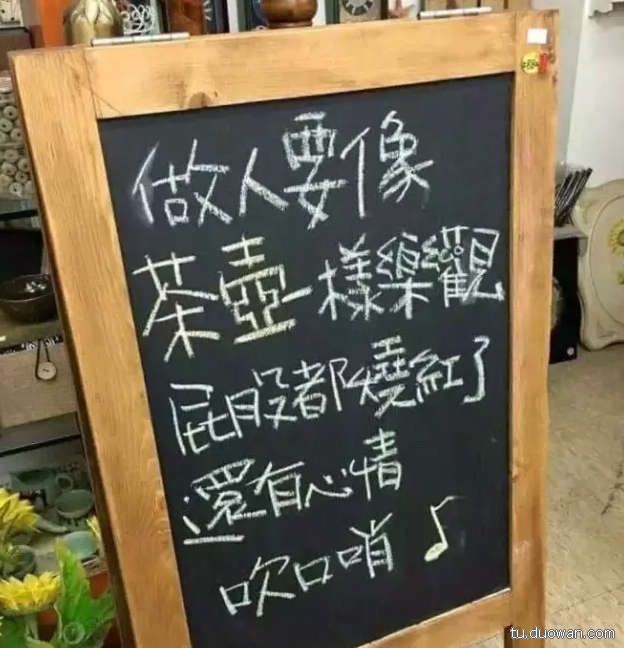 做人要像
茶壺一樣樂觀
屁股都燒紅了
還有心情
吹口哨♪
tu.duowan.com